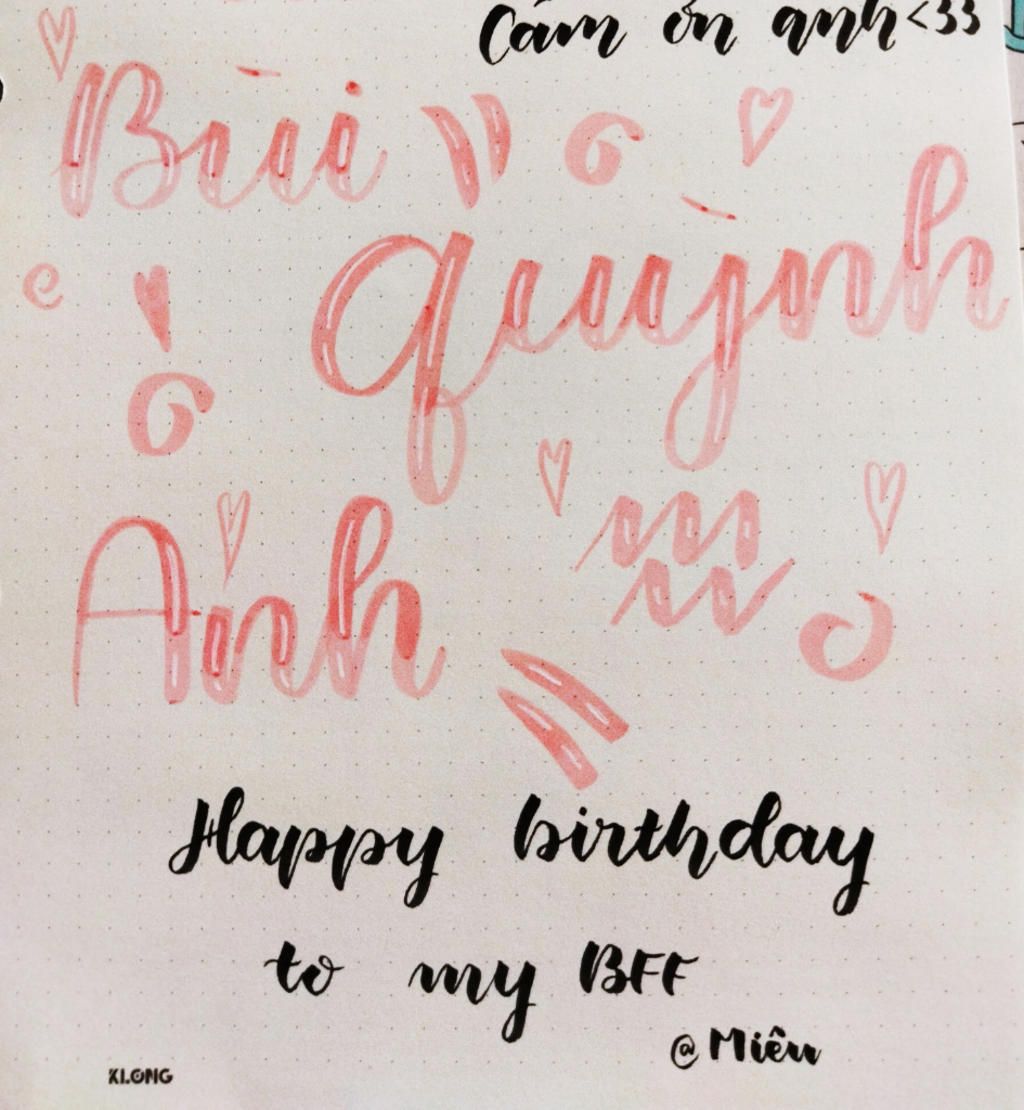 Cảm ơn anh <33
Bùi
Quỳnh
Anh
Happy birthday
to my BFF
@Miêu
KLONG